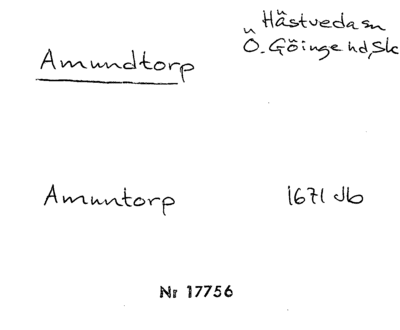 Hästveda sn
Amundtorp Ö. Göinge hd, Sk
Amuntorp 1671 Jb
Nr 17756